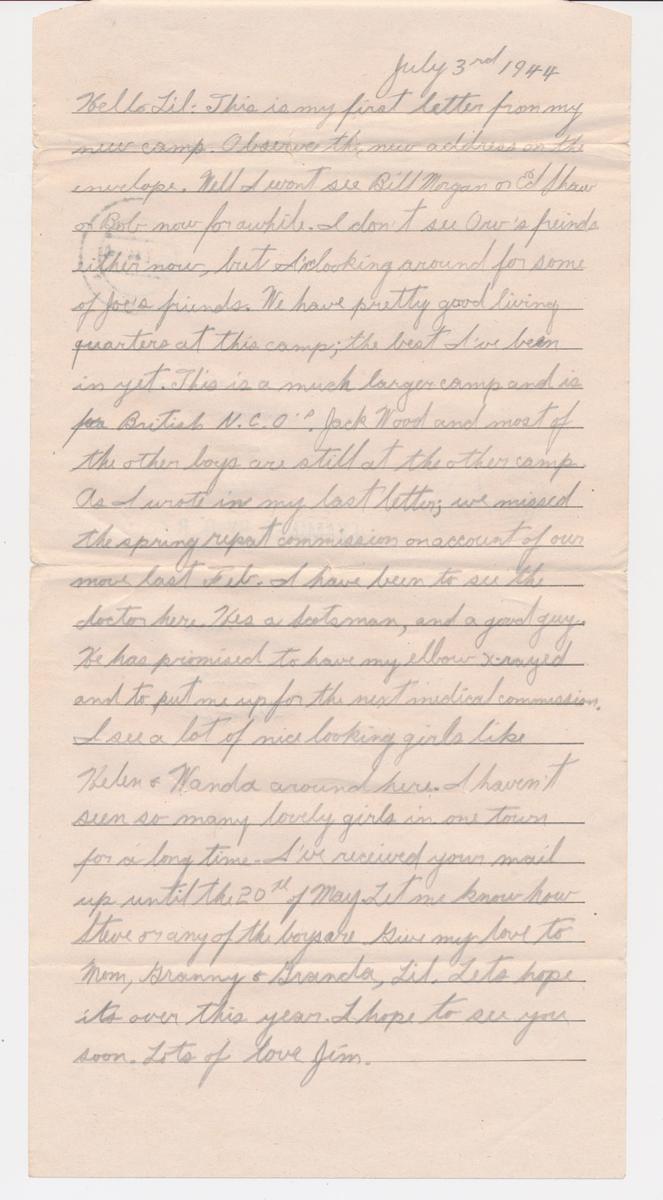 July 3rd 1944
Hello Lil: This is my first letter from my
new camp. Observe the new address on the
envelope. Well I wont see Bill Morgan or Ed Shaw
or Bob now for awhile. I don't see Orv's freinds
either now, but I'm looking around for some
of Joe's friends. We have pretty good living
quarters at this camp; the best I've been
in yet. This is a much larger camp and is
for British N.C.O's. Jack Wood and most of
the other boys are still at the other camp.
As I wrote in my last letter; we missed
the spring repat commission on account of our
move last Feb. I have been to see the
doctor here. Hes a Scotsman, and a good guy.
He has promised to have my elbow x-rayed
and to put me up for the next medical commission.
I see a lot of nice looking girls like
Helen & Wanda around here. I haven't
seen so many lovely girls in one town
for a long time. I've received your mail
up until the 20th of May. Let me know how
Steve or any of the boys are. Give my love to
Mom, Granny & Granda, Lil. Lets hope
its over this year. I hope to see you
soon. Lots of love Jim.